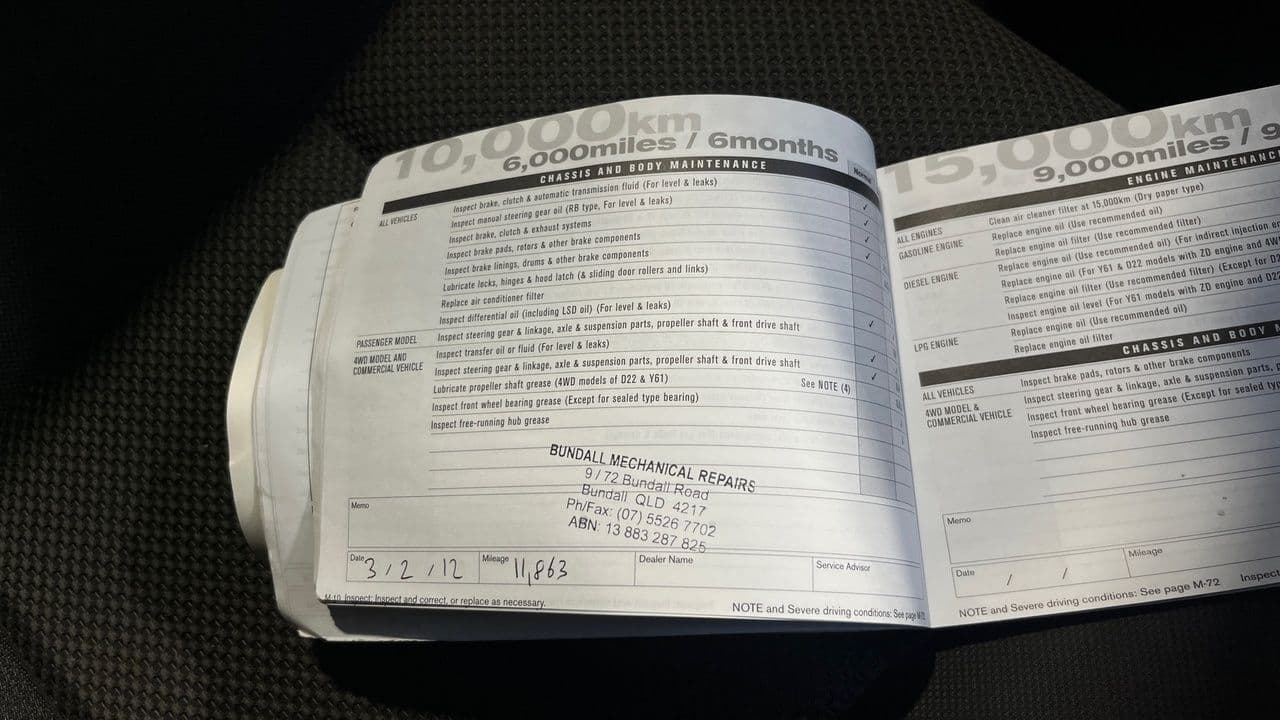 10,000km
6,000miles / 6months
CHASSIS AND BODY MAINTENANCE
ALL VEHICLES
Inspect brake, clutch & automatic transmission fluid (For level & leaks)
Inspect manual steering gear oil (RB type, For level & leaks)
Inspect brake, clutch & exhaust systems
Inspect brake pads, rotors & other brake components
Inspect brake linings, drums & other brake components
Lubricate locks, hinges & hood latch (& sliding door rollers and links)
Replace air conditioner filter
Inspect differential oil (including LSD oil) (For level & leaks)
PASSENGER MODEL
Inspect steering gear & linkage, axle & suspension parts, propeller shaft & front drive shaft
4WD MODEL AND
COMMERCIAL VEHICLE
Inspect transfer oil or fluid (For level & leaks)
Inspect steering gear & linkage, axle & suspension parts, propeller shaft & front drive shaft
Lubricate propeller shaft grease (4WD models of D22 & Y61) See NOTE (4)
Inspect front wheel bearing grease (Except for sealed type bearing)
Inspect free-running hub grease
BUNDALL MECHANICAL REPAIRS
9 / 72 Bundall Road
Bundall QLD 4217
Ph/Fax: (07) 5526 7702
ABN: 13 883 287 825
Memo
Date 3 / 2 / 12 Mileage 11,863 Dealer Name Service Advisor
M-10 Inspect: Inspect and correct, or replace as necessary.
NOTE and Severe driving conditions: See page
15,000km
9,000miles / 9
ENGINE MAINTENANC
ALL ENGINES
Clean air cleaner filter at 15,000km (Dry paper type)
GASOLINE ENGINE
Replace engine oil (Use recommended oil)
Replace engine oil filter (Use recommended filter)
DIESEL ENGINE
Replace engine oil (Use recommended oil) (For indirect injection
Replace engine oil (For Y61 & D22 models with ZD engine and 4W
Replace engine oil filter (Use recommended filter) (Except for D2
Inspect engine oil level (For Y61 models with ZD engine and D2
LPG ENGINE
Replace engine oil (Use recommended oil)
Replace engine oil filter
CHASSIS AND BODY
ALL VEHICLES
Inspect brake pads, rotors & other brake components
4WD MODEL &
COMMERCIAL VEHICLE
Inspect steering gear & linkage, axle & suspension parts,
Inspect front wheel bearing grease (Except for sealed
Inspect free-running hub grease
Memo
Date / / Mileage
NOTE and Severe driving conditions: See page M-72 Inspect